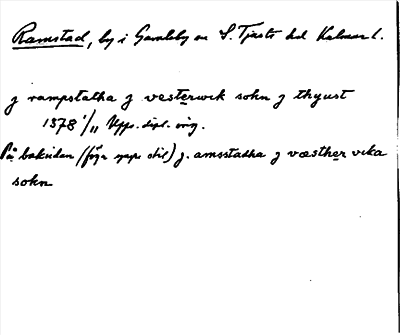 Ramstad, by i Gamleby sn S. Tjusts hd Kalmar l.
j rampstatha j vesterwik sohn j thyust
1378 1/11 Upps. dipl. orig.
På baksidan (något yngre stil) j. amsstadha j væsther vika
sohn